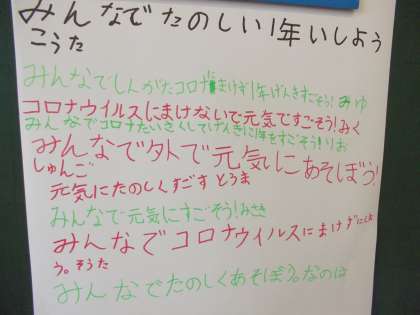 みんなでたのしい1年いしよう
こうた
みんなでしんがたコロナまけず1年げんきすごそう! みゆ
コロナウイルスにまけないで元気ですごそう!みく
みんなでコロナたいさくしてげんきに1年をすごそう!りお
みんなで外で元気にあそぼう!
しゅんご
元気にたのしくすごす とうま
みんなで元気にすごそう!みさき
みんなでコロナウイルスにまけずにしよ
う。そうた
みんなでたのしくあそぼう。なのは